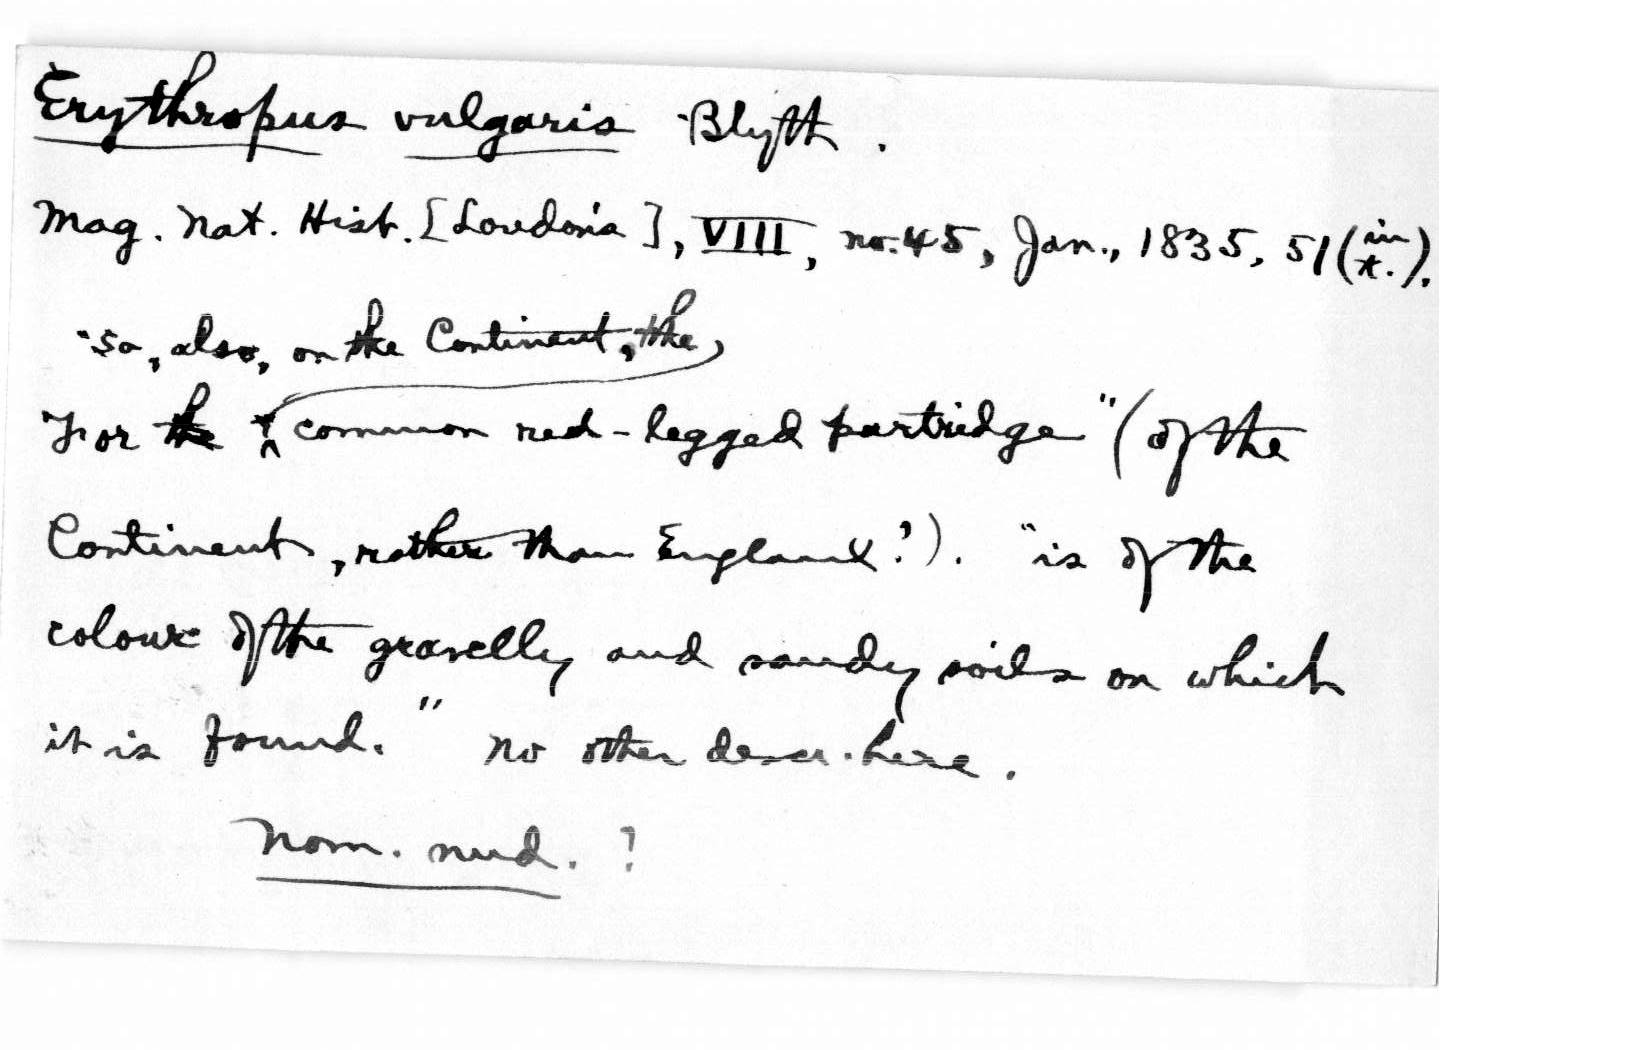 Erythropus vulgaris Blyth.
Mag. Nat. Hist. [Loudon's], VIII, no. 45, Jan., 1835, 51 (in t.).
"So, also, on the Continent, the
For the common red-legged partridge" (of the
Continent, rather than England?). "is of the
colour of the gravelly and sandy soils on which
it is found." No other descr. here.
Nom. nud. ?